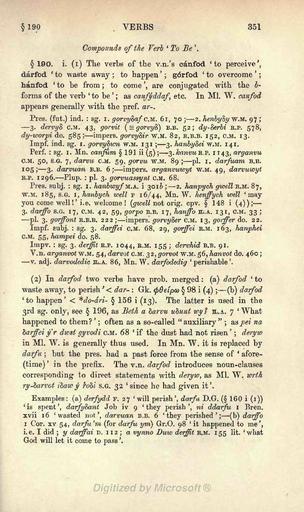 § 190 VERBS 351
Compounds of the Verb 'To Be'.
§ 190. i. (1) The verbs of the v.n.'s cánfod 'to perceive',
dárfod 'to waste away; to happen'; górfod 'to overcome';
hánfod 'to be from; to come', are conjugated with the b-
forms of the verb 'to be'; as canfýddaf, etc. In Ml. W. canfod
appears generally with the pref. ar-.
Pres. (fut.) ind. : sg. 1. goreyðaf C.M. 61, 70;—2. henbyðy W.M. 97;
—3. deryð C.M. 43, gorvit (≡ goryð) B.B. 52; dy-ðerbi B.P. 578,
dy-worpi do. 585;—impers. goreyðir W.M. 82, R.B.B. 125, C.M. 13.
Impf. ind. sg. 1. goreyðwn W.M. 131;—3. hanbyðei W.M. 141.
C.M. 50, S.G. 7, darvu C.M. 59, gorvu W.M. 89;—pl. 1. darfuam R.B.
wyt R.P. 1296.—Plup. : pl. 3. gorvuassynt C.M. 68.
M. 185, S.G. 1, hanbych well
you come well!' i.e. welcome!
3. darffo S.G. 17, C.M. 42, 59,
—pl. 3. gorffont R.B.B. 222;—impers.
Impf. subj. : sg. 3. darffei C.M. 68, 29, gorffei R.M. 163, hanphei
C.M. 55, hampei do. 58.
Impv. : sg. 3. derffit R.P. 1044, R.M. 155; derehid B.B. 91.
V.n. arganvot W.M. 54, darvot C.M. 32, gorvot W.M. 56, hanvot do. 460;
—v. adj. darvodedic R.B.A. 86, Mn. W. darfodedig 'perishable'.
(2) In darfod two verbs have prob. merged : (a) darfod 'to
waste away, to perish' < dar- : Gk. φθείρω § 98 i (4);—(b) darfod
'to happen' < *do-ári- § 156 i (13). The latter is used in the
3rd sg. only, see § 196, as Beth a ðarvu uðunt wy? 'What
happened to them?'; often as a so-called "auxiliary"; as pei na
ðarffei y'r dwst gyvodi C.M. 68 'if the dust had not risen'; deryw
in Ml. W. is generally thus used. In Mn. W. it is replaced by
darfu; but the pres. had a past force from the sense of 'afore-
(time)' in the prefix. The v.n. darfod introduces noun-clauses
corresponding to direct statements with deryw, as Ml. W. wrth
ry-ðarvot iðaw y roði S.G. 32 'since he had given it'.
Examples : (a) derfydd F. 27 'will perish', darfu D.G. (§ 160 i (1))
'is spent', darfyðant Job iv 9 'they perish', ni ddarfu 1 Bren.
xvii 16 'wasted not', darvuan B.B. 6 'they perished';—(b) darffo
1 Cor. xv 54, darfu'm (for darfu ym) Gr.O. 98 'it happened to me',
i.e. I did; y darffai D. 112; a vynno Duw derffit R.M. 155 lit. 'what
God will let it come to pass'.
Digitized by Microsoft ®